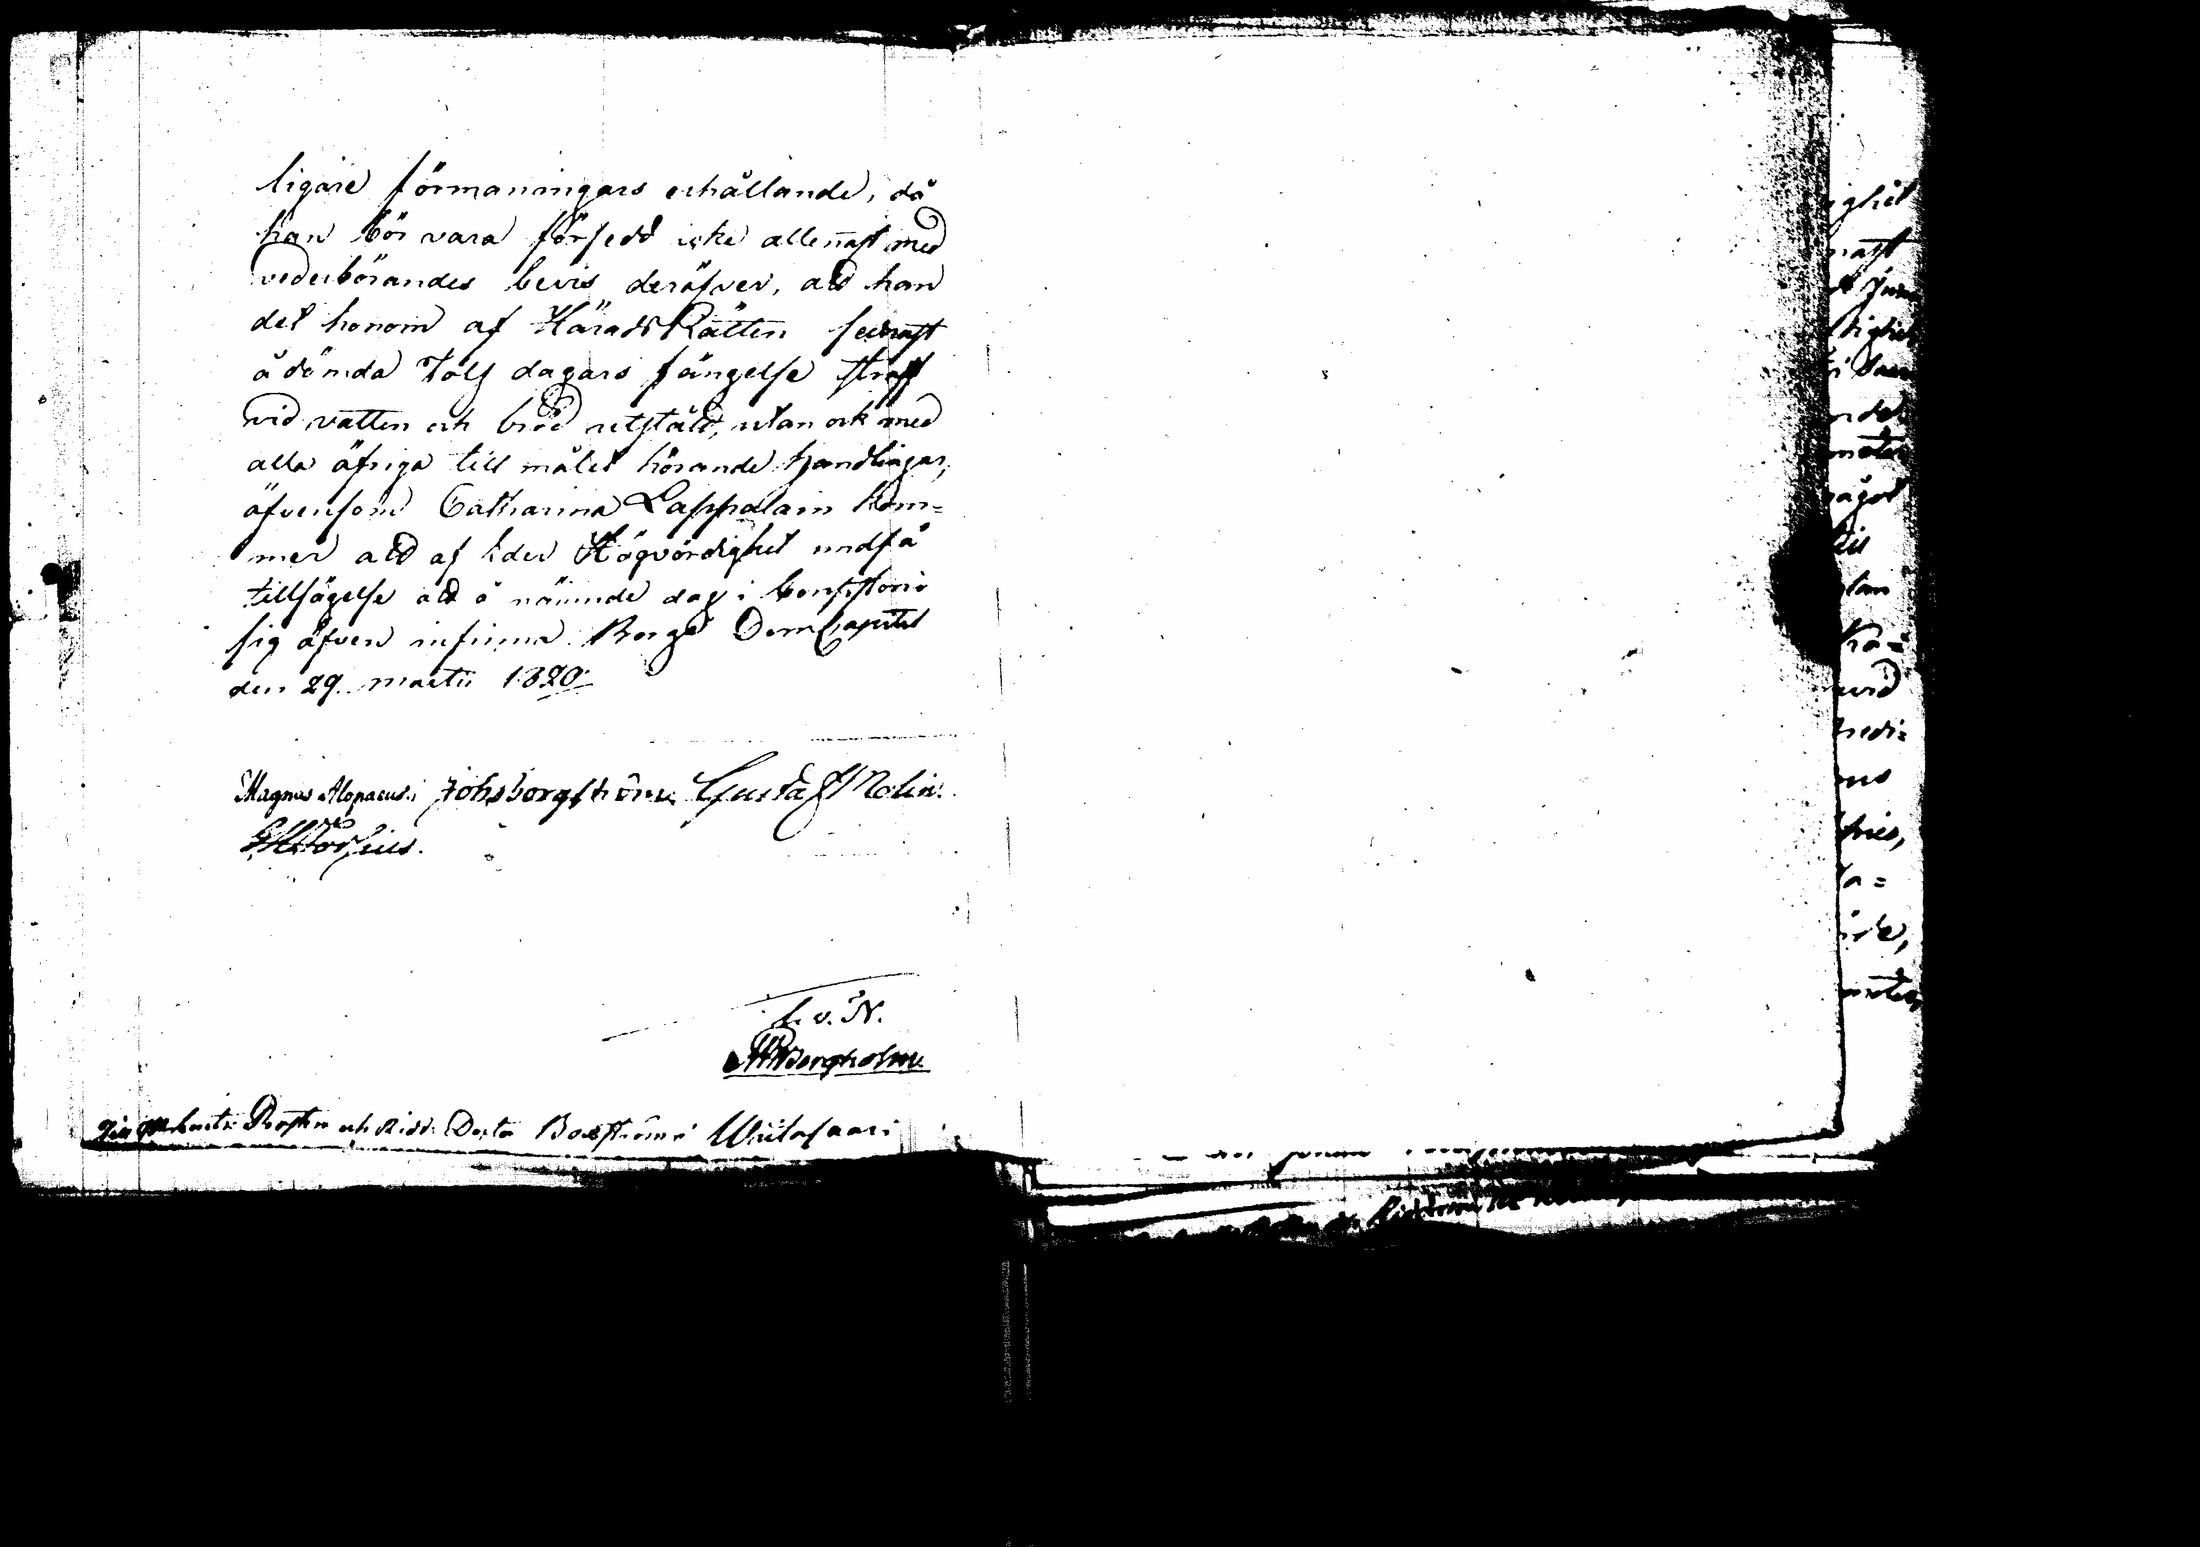 ligare förmaningars erhållande, då
han bör vara försedd icke allenast med
vederbörandes bevis deröfver, att han
det honom af HäradsRätten senast
ådömda Tolf dagars fängelse straff
vid vatten och bröd utstådt, utan ock med
alla öfriga till målet hörande handlingar,
äfvensom Catharina Lappalain kom=
mer att af Eder Högvördighet undfå
tillsägelse att å nämnde dag i Consistorio
sig äfven infinna. Borgå DomCapitel
den 29. martii 1820.
Magnus Alopaeus. Johs Borgström Gustaf Molin.
L. v. N.
Bergholm.
Prosten och Ridd: Doct: Boxström i Wiitasaari
ighet
nast
något
lan
vid